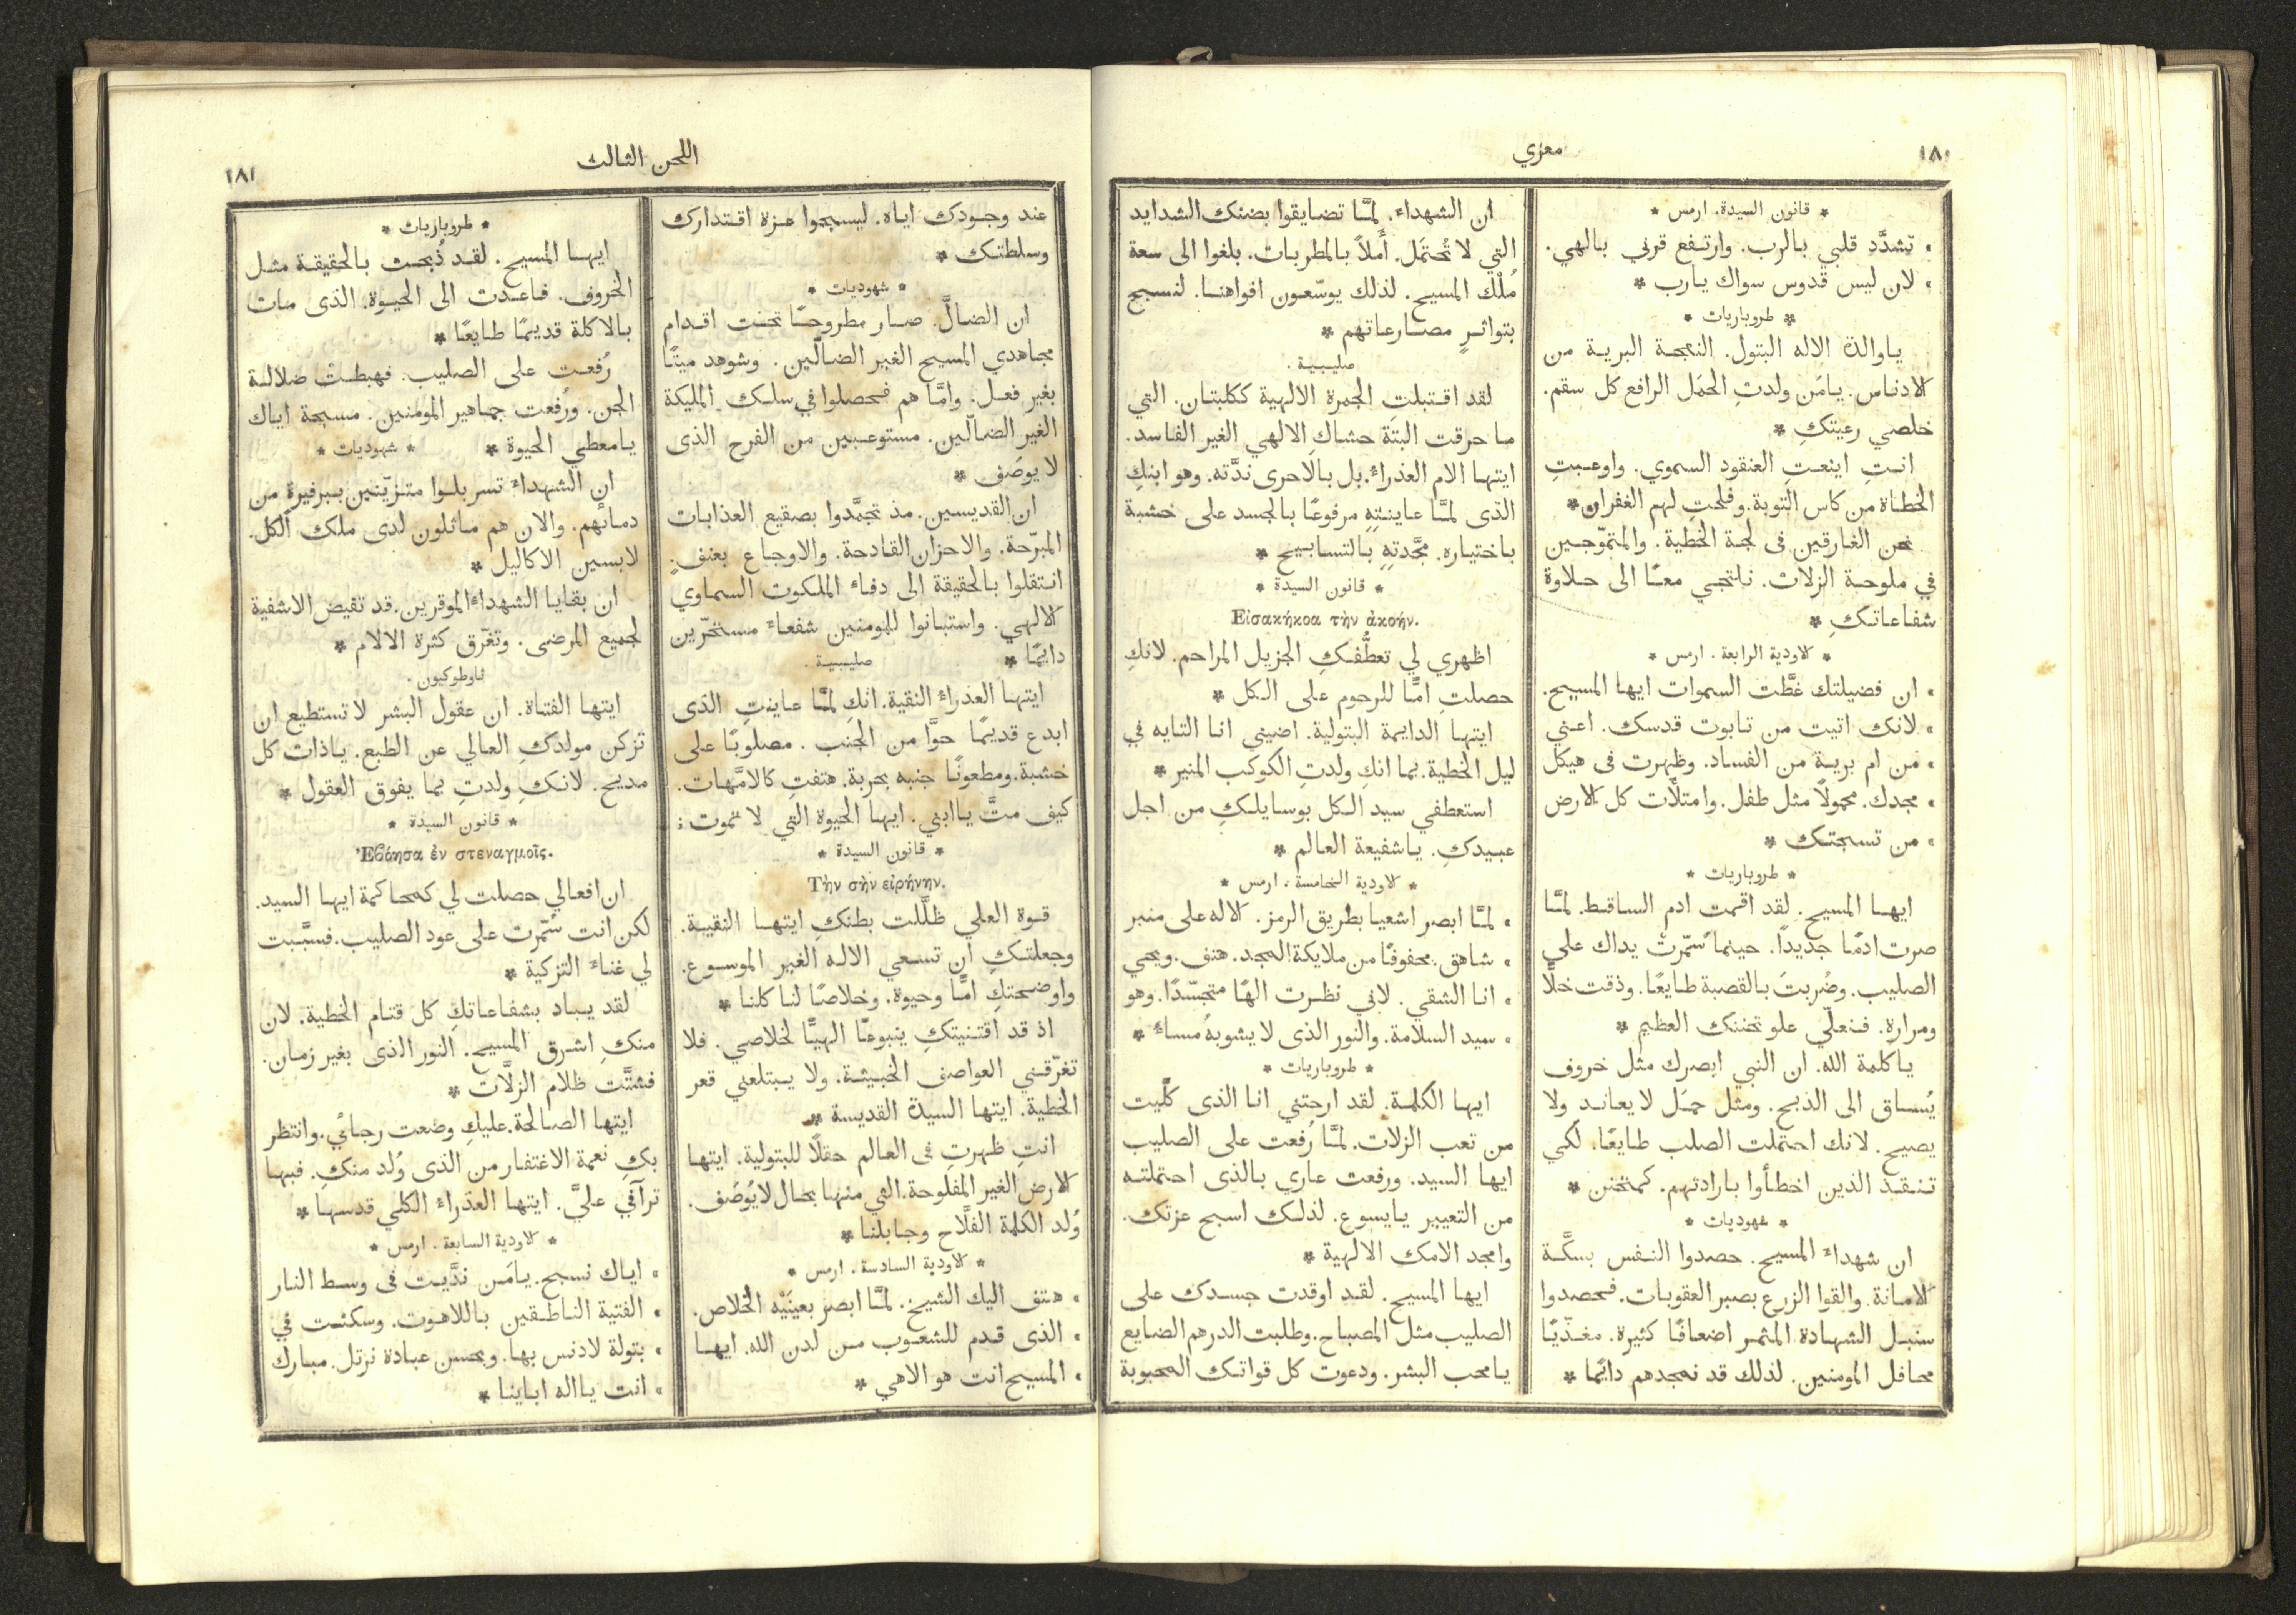 ١٨٠
معزي
* قانون السيدة. ارمس *
» تشدَّد قلبي بالرب. وارتفع قرني بالهي.
» لان ليس قدوس سواك يارب *
* طروباريات *
ياوالدة الاله البتول. النعجة البرية من
الادناس. يامَن ولدتِ الحمَل الرافع كل سقم.
خلصي رعيتكِ *
انتِ اينعتِ العنقود السموي. واوعبتِ
الخطاة من كاس التوبة. وفلحتِ لهم الغفران *
نحن الغارقين فى لجة الخطية. والمتموّجين
في ملوحة الزلات. نلتجي معًا الى حلاوة
شفاعاتكِ *
* الاودية الرابعة. ارمس *
» ان فضيلتك غطَّت السموات ايها المسيح.
» لانك اتيت من تابوت قدسك. اعني
» من ام برية من الفساد. وظهرت فى هيكل
» مجدك. محمولاً مثل طفل. وامتلأت كل الارض
» من تسبحتك *
* طروباريات *
ايها المسيح. لقد اقمت ادم الساقط. لمَّا
صرت ادمًا جديدًا. حينما سُمّرتْ يداك على
الصليب. وضُربتَ بالقصبة طايعًا. وذقت خلًّا
ومرارة. فنعلّي علو تحننك العظيم *
ياكلمة الله. ان النبي ابصرك مثل خروف
يُساق الى الذبح. ومثل حمَل لا يعاند ولا
يصيح. لانك احتملت الصلب طايعًا. لكي
تنقذ الذين اخطأوا بارادتهم. كمتحنن *
* شهوديات *
ان شهداءَ المسيح. حصدوا النفس بسكَّة
الامانة. والقوا الزرع بصبر العقوبات. فحصدوا
سنبل الشهادة المثمر اضعافًا كثيرة. مغذّيًا
محافل المومنين. لذلك قد نمجدهم دائمًا *
ان الشهداءَ. لمَّا تضايقوا بضنك الشدايد
التي لا تُحتمَل. أملاً بالمطربات. بلغوا الى سعة
مُلْك المسيح. لذلك يوسّعون افواهنا. لنسبح
بتواثرٍ مصارعاتهم *
صليبية.
لقد اقتبلتِ الجمرة الالهية ككلبتان. التي
ما حرقت البتَة حشاكِ الالهي الغير الفاسد.
ايتها الام العذراءَ. بل بالاحرى ندَّته. وهو ابنكِ
الذى لمَّا عاينتِهِ مرفوعًا بالجسد على خشبة
باختياره. مجَّدتِهِ بالتسابيح *
* قانون السيدة *
Εἰσακήκοα τὴν ἀκοήν.
اظهري لي تعطُّفكِ الجزيل المراحم. لانكِ
حصلتِ امًّا للرحوم على الكل *
ايتها الدايمة البتولية. اضيني انا التايه في
ليل الخطية. بما انكِ ولدتِ الكوكب المنير *
استعطفي سيد الكل بوسايلكِ من اجل
عبيدكِ. ياشفيعة العالم *
* الاودية الخامسة. ارمس *
» لمَّا ابصر اشعيا بطريق الرمز. الاله على منبر
» شاهق. محفوفًا من ملايكة المجد. هتف. ويحي
» انا الشقي. لاني نظرت الهًا متجسّدًا. وهو
» سيد السلامة. والنور الذى لا يشوبهُ مساءٌ *
* طروباريات *
ايها الكلمة. لقد ارحتني انا الذى كلَّيت
من تعب الزلات. لمَّا رُفعت على الصليب
ايها السيد. ورفعت عاري بالذى احتملته
من التعيير يايسوع. لذلك اسبح عزتك.
وامجد الامك الالهية *
ايها المسيح. لقد اوقدت جسدك على
الصليب مثل المصباح. وطلبت الدرهم الضايع
يامحب البشر. ودعوت كل قواتك المحبوبة
اللحن الثالث
١٨١
عند وجودك اياه. ليسبحوا عزة اقتدارك
وسلطتك *
* شهوديات *
ان الضالَّ. صار مطروحًا تحت اقدام
مجاهدي المسيح الغير الضالّين. وشوهد ميتًا
بغير فعل. وامَّا هم فحصلوا في سلك المليكة
الغير الضالّين. مستوعبين من الفرح الذى
لا يوصَف *
ان القديسين. مذ تجمَّدوا بصقيع العذابات
المبرّحة. والاحزان القادحة. والاوجاع بعنفٍ.
انتقلوا بالحقيقة الى دفاءَ الملكوت السماوي
الالهي. واستبانوا للمومنين شفعاءَ مستحرّين
دايمًا * صليبية.
ايتها العذراءَ النقية. انكِ لمَّا عاينتِ الذى
ابدع قديمًا حوَّا من الجنب. مصلوبًا على
خشبة. ومطعونًا جنبه بحربة. هتفتِ كالامَّهات.
كيف متَّ ياابني. ايها الحيوة التي لا تموت *
* قانون السيدة *
Τὴν σὴν εἰρήνην.
قوة العلي ظلَّلت بطنكِ ايتها النقية.
وجعلتكِ ان تسعي الاله الغير الموسوع.
واوضحتكِ امًّا وحيوة. وخلاصًا لنا كلنا *
اذ قد اقتنيتكِ ينبوعًا الهيًّا لخلاصي. فلا
تغرّقني العواصف الخبيثة. ولا يبتلعني قعر
الخطية. ايتها السيدة القديسة *
انتِ ظهرتِ فى العالم حقلًا للبتولية. ايتها
الارض الغير المفلوحة. التي منها بحال لا يُوصَف.
وُلد الكلمة الفلَّاح وجابلنا *
* الاودية السادسة. ارمس *
» هتف اليك الشيخ. لمَّا ابصر بعينَيْه الخلاص.
» الذى قدم للشعوب من لدن الله. ايها
» المسيح انت هو الاهي *
* طروباريات *
ايها المسيح. لقد ذُبحت بالحقيقة مثل
الخروف. فاعدت الى الحيوة. الذى مات
بالاكلة قديمًا طايعًا *
رُفعت على الصليب. فهبطتْ ضلالة
الجن. ورُفعت جماهير المومنين. مسبحة اياك
يامعطي الحيوة * * شهوديات *
ان الشهداءَ تسربلوا متزيّنين ببرفيرة من
دمائهم. والان هم ماثلون لدى ملك الكل.
لابسين الاكاليل *
ان بقايا الشهداءَ الموقرين. قد تفيض الاشفية
لجميع المرضى. وتغرّق كثرة الالام *
ثاوطوكيون.
ايتها الفتاة. ان عقول البشر لا تستطيع ان
تزكن مولدكِ العالي عن الطبع. ياذات كل
مديح. لانكِ ولدتِ بما يفوق العقول *
* قانون السيدة *
Ἐβόησα ἐν στεναγμοῖς.
ان افعالي حصلت لي كمحاكمة ايها السيد.
لكن انت سُمّرت على عود الصليب. فسبَّبت
لي غناءَ التزكية *
لقد يباد بشفاعاتكِ كل قتام الخطية. لان
منكِ اشرق المسيح. النور الذى بغير زمان.
فشتَّت ظلام الزلَّات *
ايتها الصالحة. عليكِ وضعت رجائي. وانتظر
بكِ نعمة الاغتفار من الذى وُلد منكِ. فبها
ترآفي عليَّ. ايتها العذراءَ الكلي قدسها *
* الاودية السابعة. ارمس *
» اياك نسبح. يامَن ندَّيت فى وسط النار
» الفتية الناطقين باللاهوت. وسكنت في
» بتولة لا دنس بها. وبحسن عبادة نرتل. مبارك
» انت يااله ابأينا *